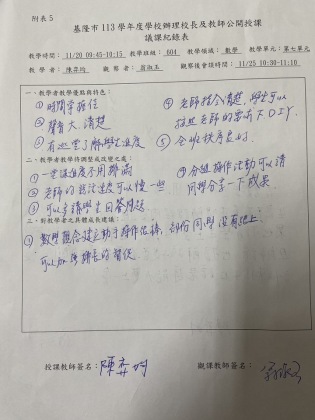 附表 5
基隆市 113 學年度學校辦理校長及教師公開授課
議課紀錄表
教學時間：11/20 09:45-10:15 教學班級：604 教學領域：數學 教學單元：第七單元
教 學 者：陳弈均 觀 察 者：翁淑玉 觀察後會談時間：11/25 10:30-11:10
一、教學者教學優點與特色：
① 時間掌握佳
② 聲音大、清楚
③ 有巡堂了解學生進度
④ 老師指令清楚，學生可以
按照老師的需求 DIY
⑤ 全班秩序良好
二、教學者教學待調整或改變之處：
① 一堂課進度不用
② 老師的 速度可以慢一些
③ 可以多請學生回答問題
④ 分組操作活動可以請
同學分享一下成果
三、對教學者之具體成長建議：
① 數學觀念建立動手操作 ，部份同學沒有跟上，
可以
授課教師簽名：陳弈均
觀課教師簽名：